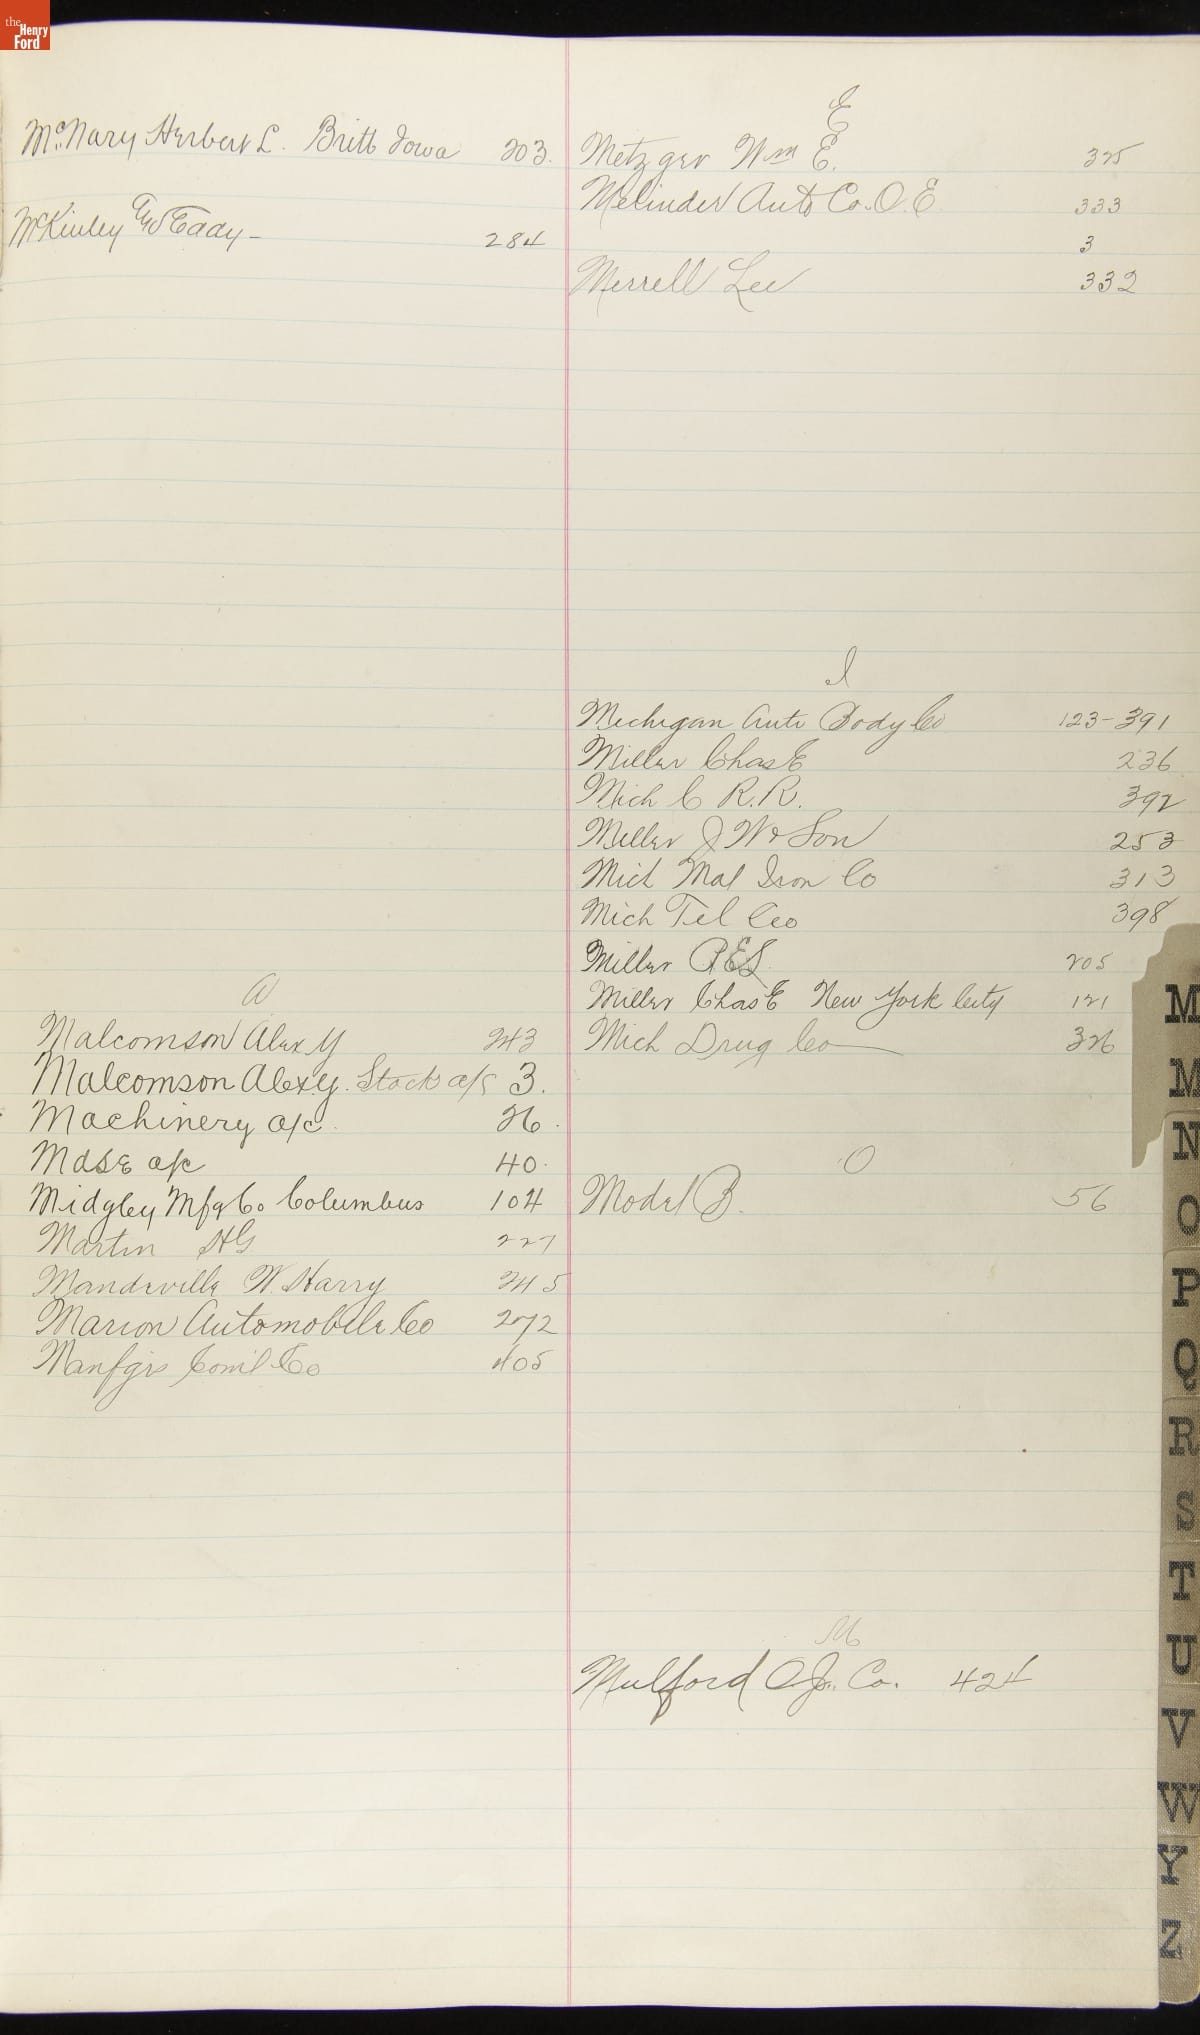 the Henry Ford
McNary Herbert L. Britt Iowa 203.
McKinley Geo Eady - 284
A
Malcomson Alex Y 243
Malcomson Alex Y. Stock a/c 3.
Machinery a/c 26.
Mdse a/c 40.
Midgley Mfg Co Columbus 104
Martin HG 227
Mandeville W. Harry 245
Marion Automobile Co 272
Manfgrs Coml Co 405
E
Metzger Wm E. 325
Melinder Auto Co. O. E 333
3
Merrell Lee 332
I
Michigan Auto Body Co 123-391
Miller Chas E 236
Mich C R.R. 392
Miller J W & Son 253
Mich Mal Iron Co 313
Mich Tel Co 398
Miller 205
Miller Chas E New York City 121
Mich Drug Co 326
O
Model B. 56
M
Mulford Co. 424
M
M
N
O
P
Q
R
S
T
U
V
W
Y
Z